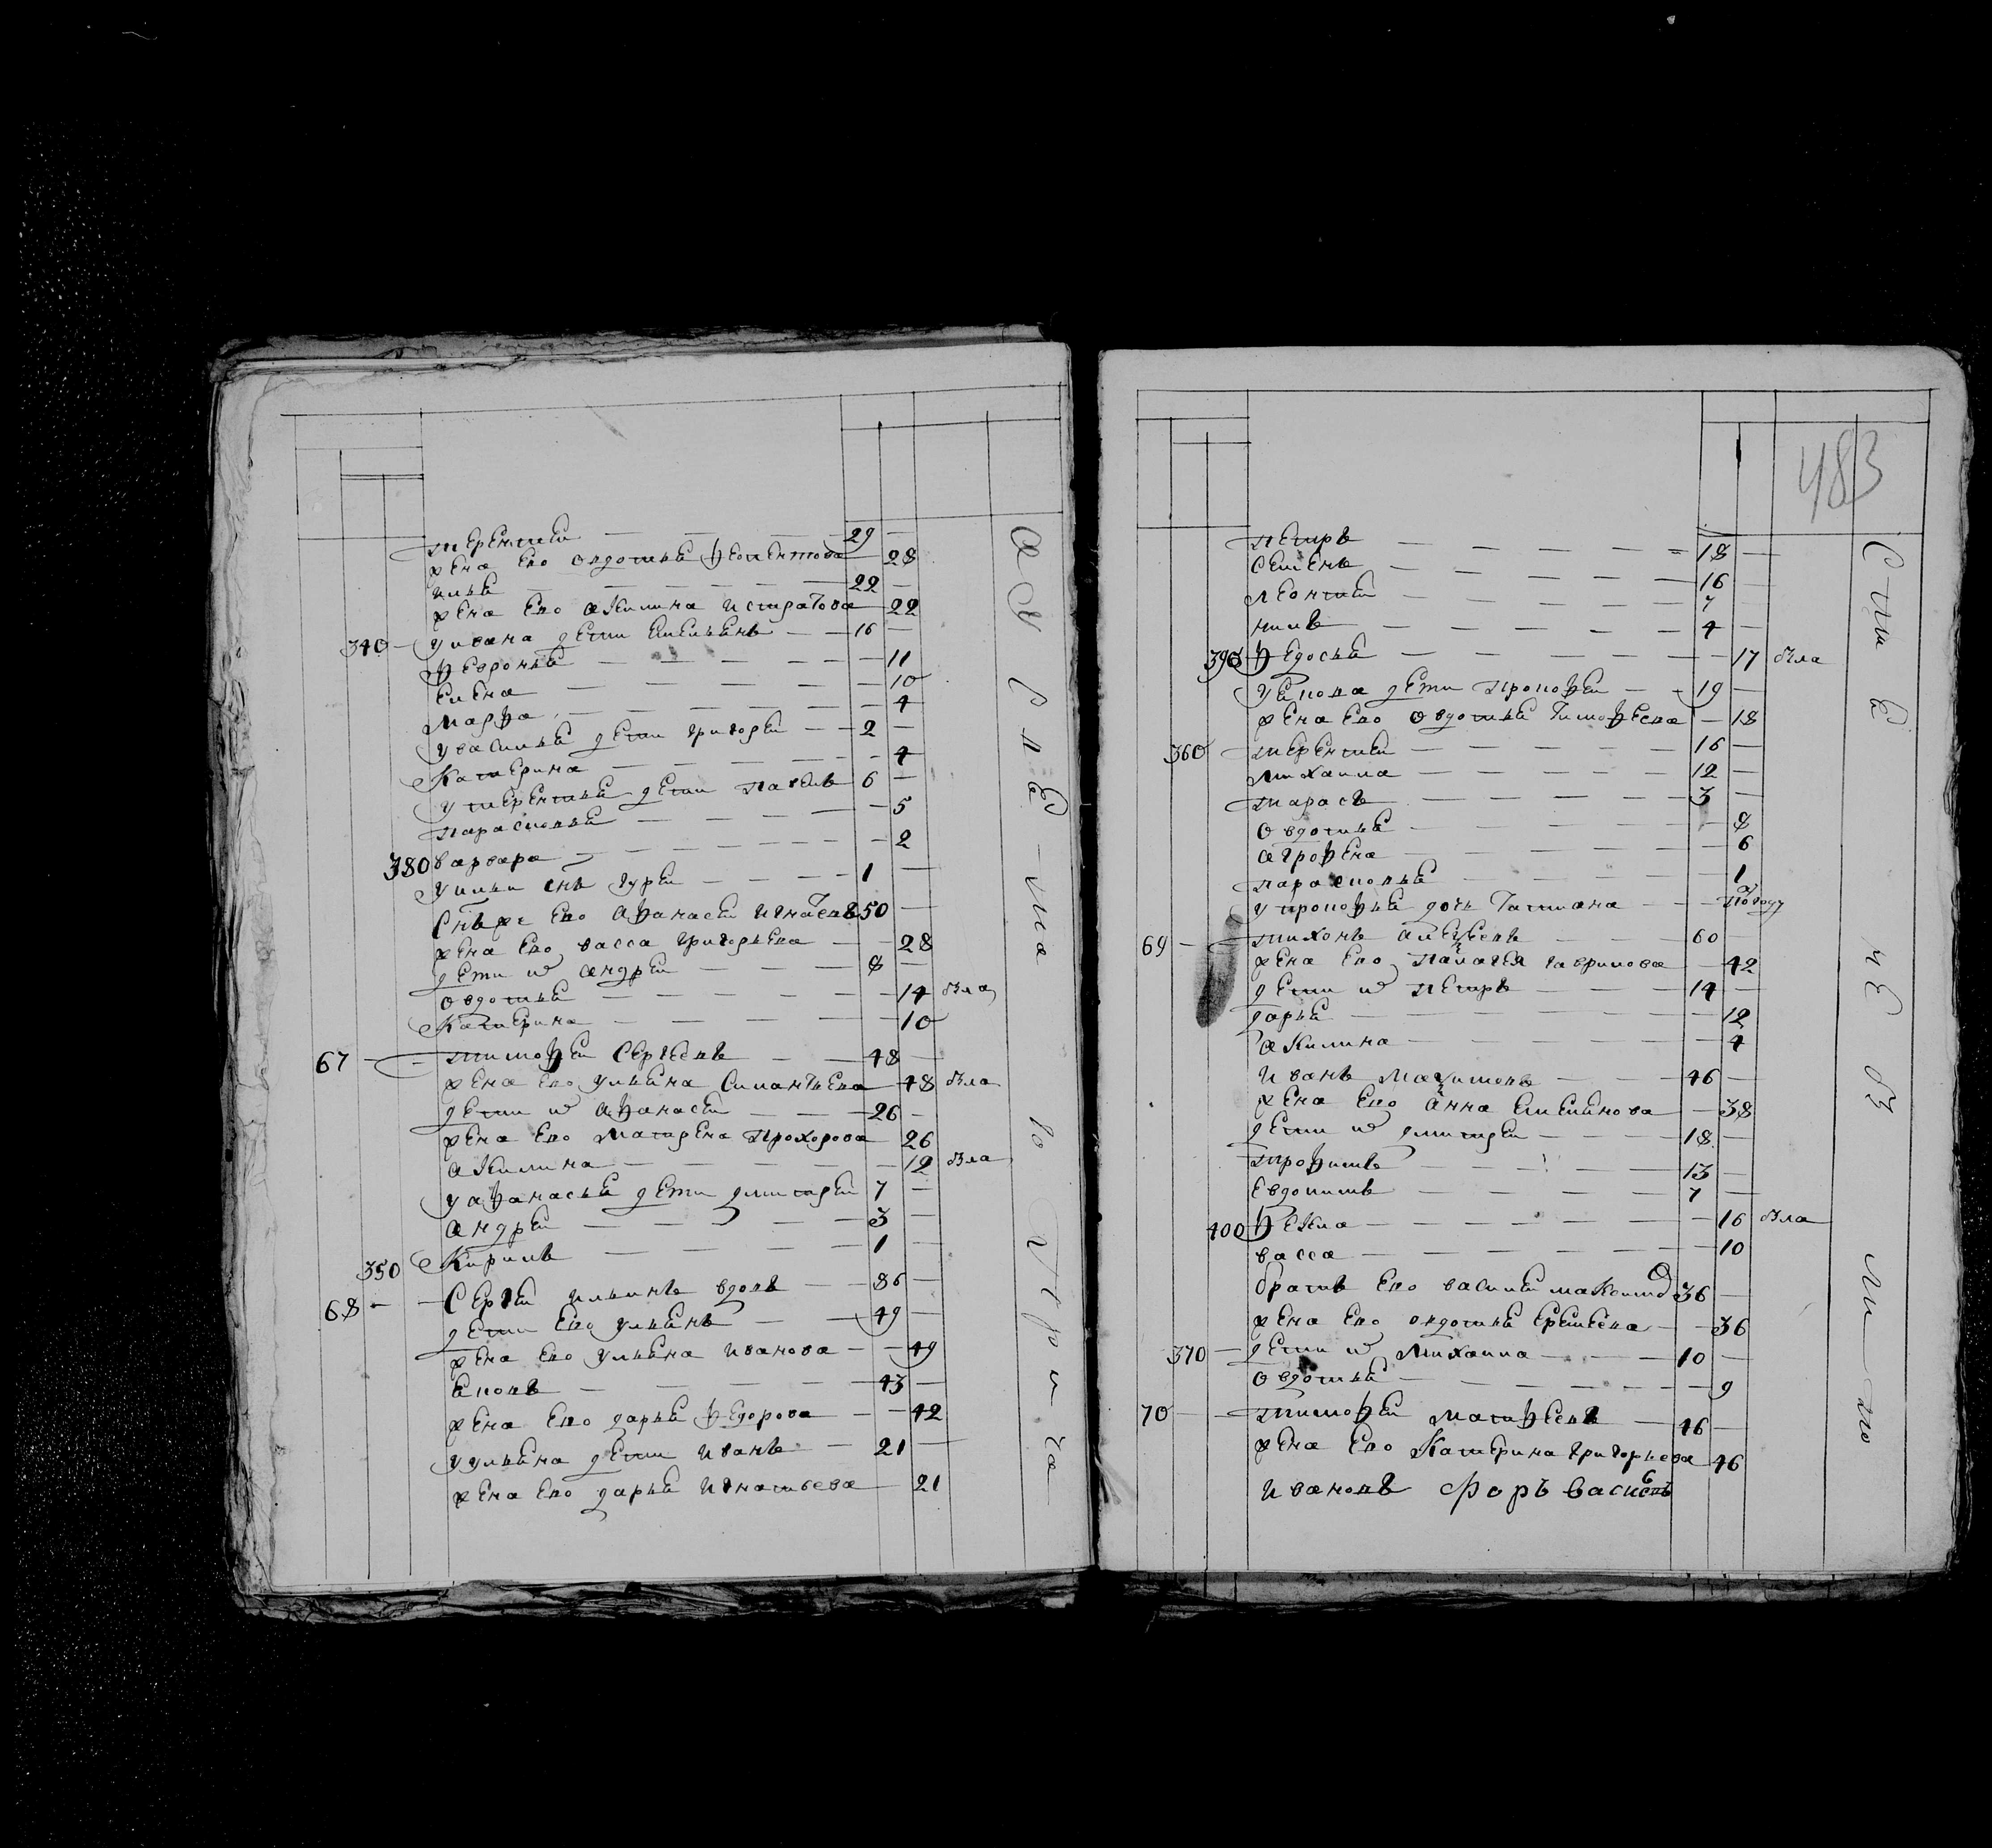 терентеи 29
жена ево овдотья феоментова 28
илья 22
жена ево акилина истратова 22
340 у ивана дети емельянъ 16
февронья 11
елена 10
марфа 4
у василья дети григореи 2
катерина 4
у терентья дети павелъ 6
парасковья 5
380 варвара 2
у ильи снъ гуреи 1
Снъ же ево афанасеи игнатевъ 50
жена ево васса григорьева 28
дети их андреи 8
овдотья 14 взла
катерина 10
67 тимофеи Сергеевъ 48
жена ево ульяна Силантьева 48 взла
дети их афанасеи 26
жена ево матрена прохорова 26
акилина 12 взла
у афанасья дети дмитреи 7
андреи 3
350 кирилъ 1
68 Сергеи ильинъ вдовъ 86
дети ево ульянъ 49
жена ево ульяна иванова 49
яковъ 43
жена ево дарья федорова 42
у ульяна дети иванъ 21
жена ево дарья игнатьева 21
483
петръ 18
Семенъ 16
леонтеи 7
нилъ 4
390 федосья 17 взла
у якова дети прокофеи 19
жена ево овдотья тимофеева 18
360 терентеи 16
михаила 12
тарасъ 3
овдотья 8
агрофена 6
парасковья 1
у прокофья дочь татиана полгоду
69 тихонъ алексеевъ 60
жена ево палагея гаврилова 42
дети их петръ 14
дарья 12
акилина 4
иванъ 46
жена ево анна емельянова 38
дети их дмитреи 18
трофимъ 13
евдокимъ 7
400 фекла 16 взла
васса 10
братъ ево василеи 36
жена ево овдотья еремеева 36
370 дети их михаила 10
овдотья 9
70 тимофеи матфеевъ 46
жена ево катерина григорьева 46
ивановъ